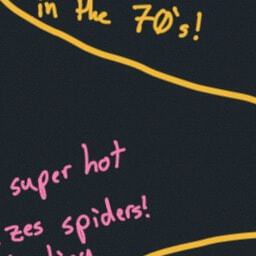 in the 70's!
super hot
zes spiders!